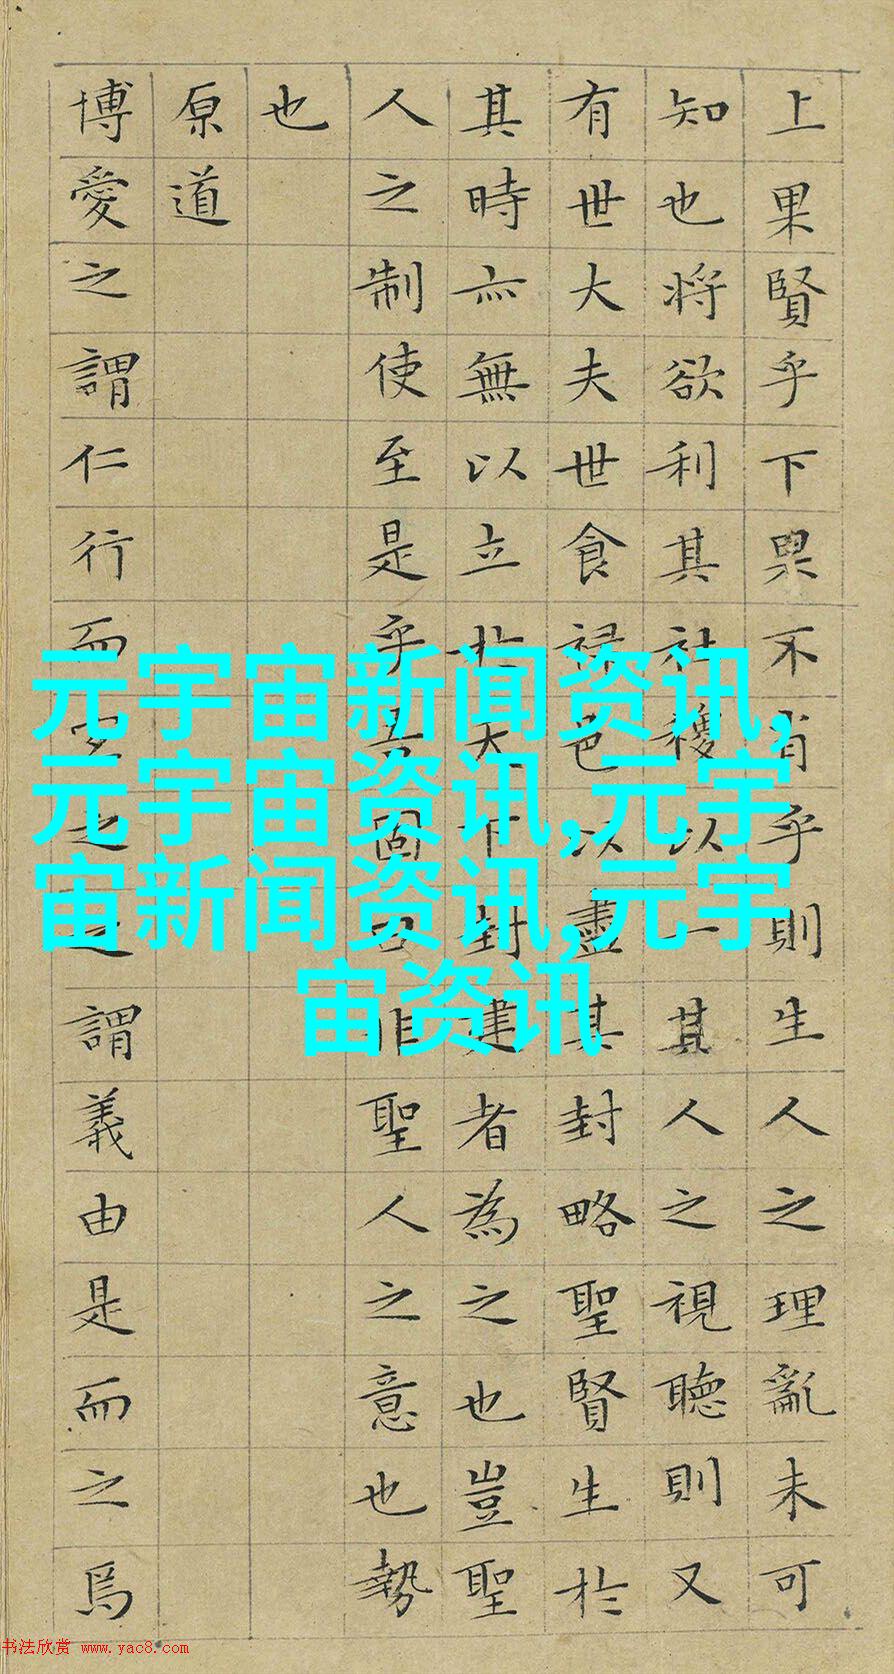 上果賢乎下果不肖乎則生人之理亂未可
知也將欲利其社稷以一其人之視聽則又
有世大夫世食祿邑以盡其封略聖賢生於
其時亦無以立於天下封建者為之也豈聖
人之制使至是乎吾固曰非聖人之意也勢
也
原道
博愛之謂仁行而宜之之謂義由是而之焉
元宇宙新闻资讯,
元宇宙资讯,元宇
宙新闻资讯,元宇
宙资讯
书法欣赏 www.yac8.com